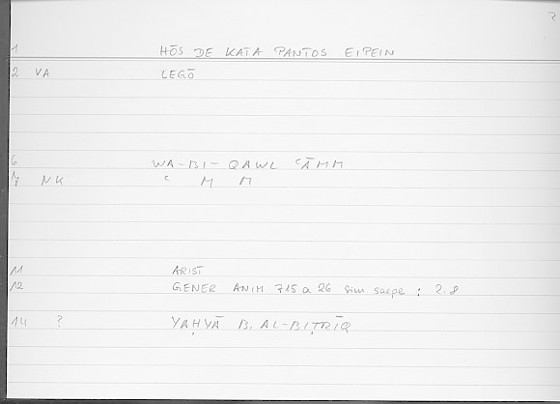 2
1 HŌS DE KATA PANTOS EIPEIN
2 VA LEGŌ
6 WA-BI-QAWL ʿĀMM
7 NK ʿ M M
11 ARIST
12 GENER ANIM 715 a 26 sim saepe : 2.8
14 ? YAḤYĀ B. AL-BIṬRĪQ